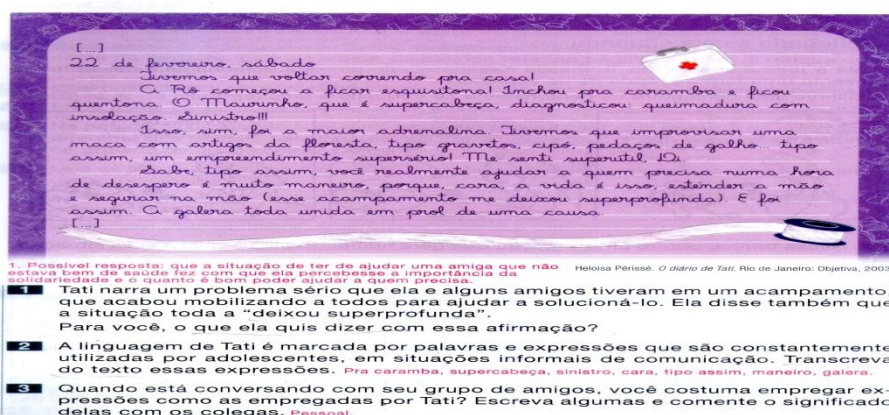 [...]
22 de fevereiro, sábado
Tivemos que voltar correndo pra casa!
A Rô começou a ficar esquisitona! Inchou pra caramba e ficou
quentona. O Maurinho, que é supercabeça, diagnosticou: queimadura com
insolação. Sinistro!!!
Isso, sim, foi a maior adrenalina. Tivemos que improvisar uma
maca com artigos da floresta, tipo gravetos, cipó, pedaços de galho... tipo
assim, um empreendimento supersério! Me senti superútil, Di.
Sabe, tipo assim, você realmente ajudar a quem precisa numa hora
de desespero é muito maneiro, porque, cara, a vida é isso, estender a mão
e segurar na mão (esse acampamento me deixou superprofunda). E foi
assim. A galera toda unida em prol de uma causa.
[...]
1. Possível resposta: que a situação de ter de ajudar uma amiga que não
estava bem de saúde fez com que ela percebesse a importância da
solidariedade e o quanto é bom poder ajudar a quem precisa.
Heloisa Périssé. O diário de Tati. Rio de Janeiro: Objetiva, 2003
1 Tati narra um problema sério que ela e alguns amigos tiveram em um acampamento,
que acabou mobilizando a todos para ajudar a solucioná-lo. Ela disse também que
a situação toda a “deixou superprofunda”.
Para você, o que ela quis dizer com essa afirmação?
2 A linguagem de Tati é marcada por palavras e expressões que são constantemente
utilizadas por adolescentes, em situações informais de comunicação. Transcreva
do texto essas expressões. Pra caramba, supercabeça, sinistro, cara, tipo assim, maneiro, galera.
3 Quando está conversando com seu grupo de amigos, você costuma empregar ex-
pressões como as empregadas por Tati? Escreva algumas e comente o significado
delas com os colegas. Pessoal.